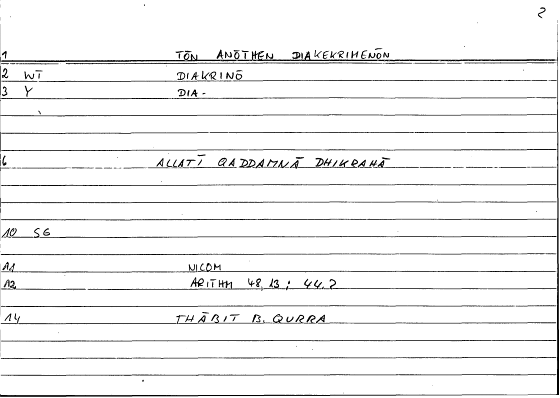 2
1 TŌN ANŌTHEN DIAKEKRIMENŌN
2 WT DIAKRINŌ
3 Y DIA-
6 ALLATĪ QADDAMNĀ DHIKRAHĀ
10 SG
11 NICOM
12 ARITHM 48,13; 44.?
14 THĀBIT B. QURRA